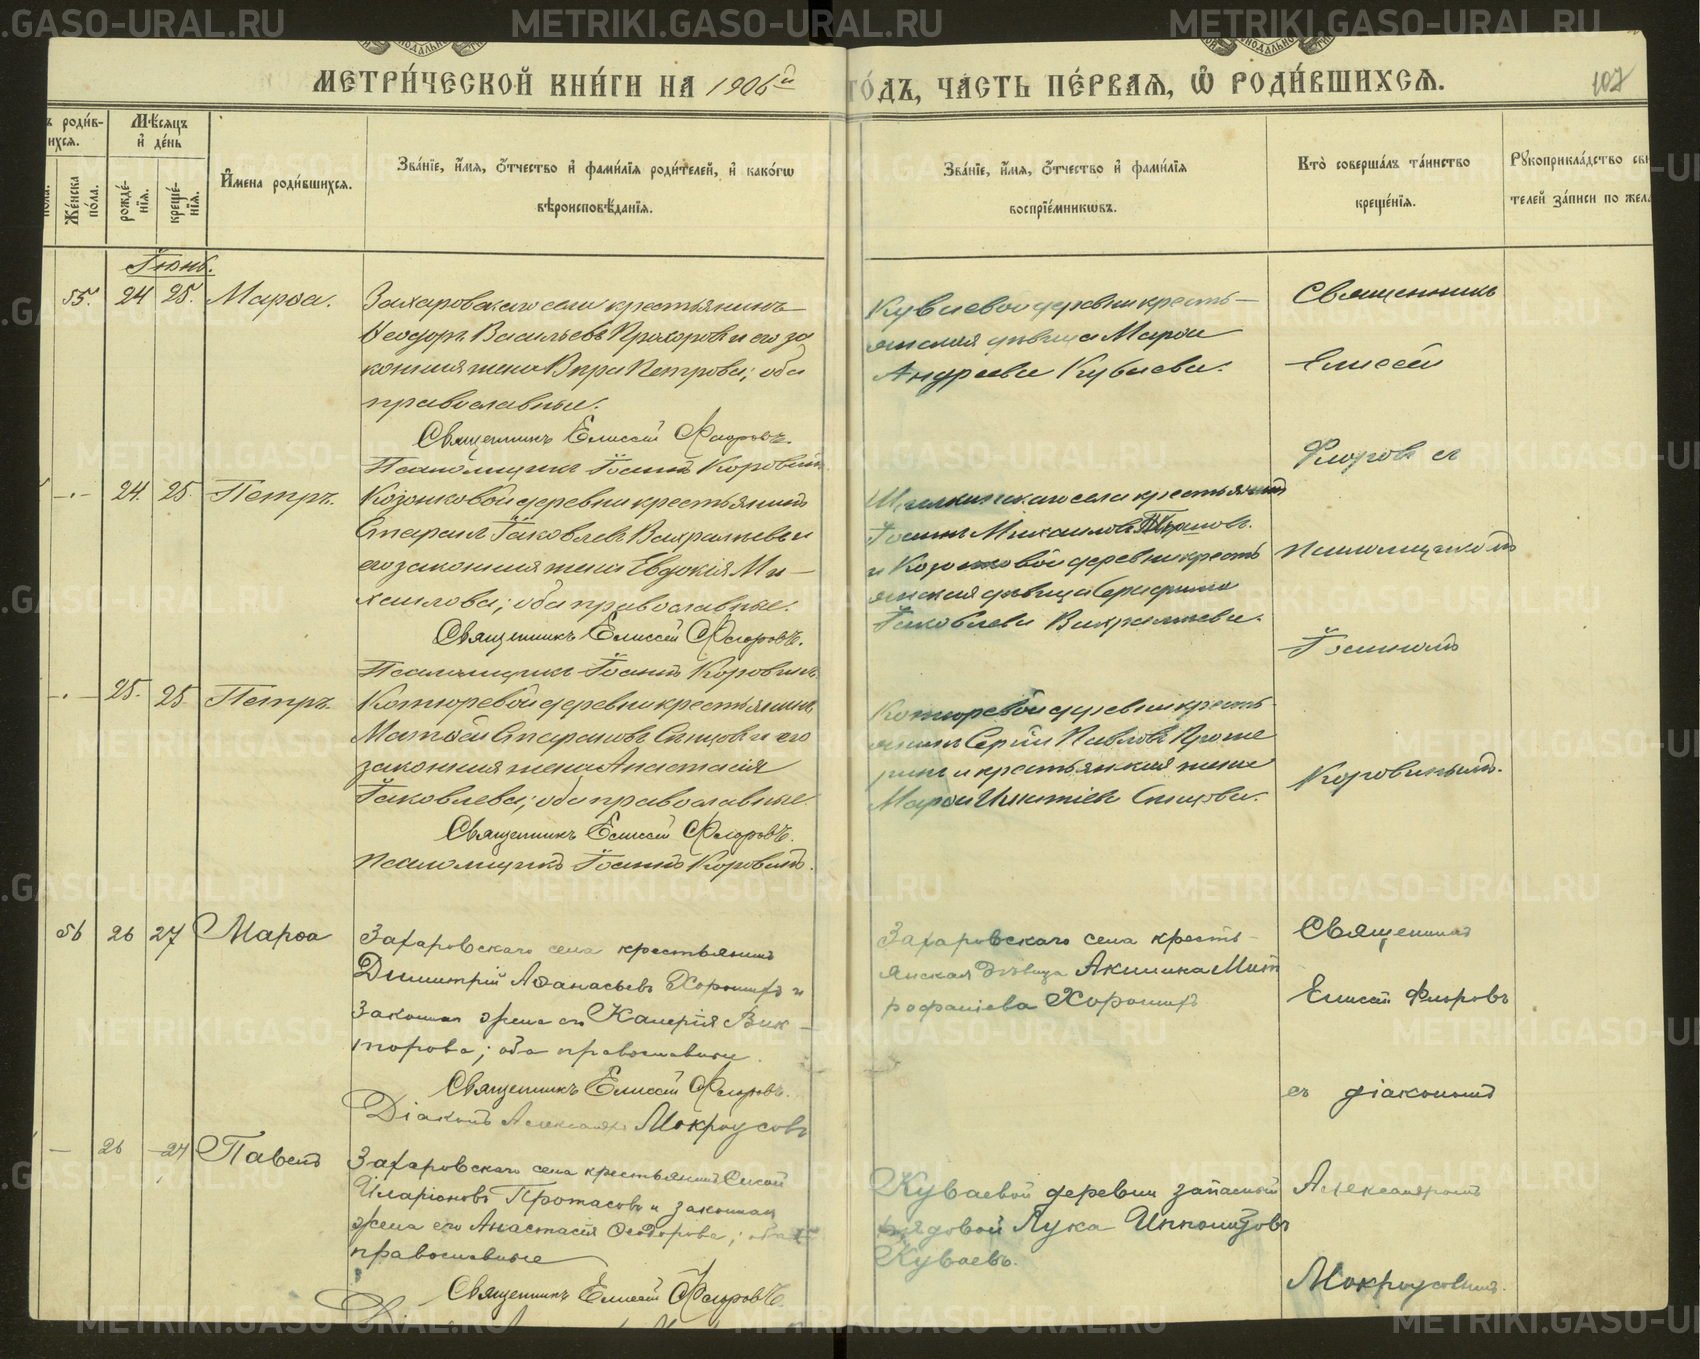 МЕТРИ́ЧЕСКОЙ КНИ́ГИ НА 1906й ГО́ДЪ, ЧАСТЬ ПЕ́РВАЯ, Ѿ РОДИ́ВШИХСЯ.
107
ъ роди́в-
ихся.
Мѣ́сяцъ
и҆ де́нь
пола.
Же́нска
по́ла.
рожде́-
нїя.
креще́-
нїя.
И҆мена роди́вшихся.
Зва́нїе, и҆́мя, ѻ҆́тчество и҆ фами́лїя роди́телей, и҆ како́гѡ
вѣроисповѣ́данїя.
Зва́нїе, и҆́мя, ѻ҆́тчество и҆ фами́лїя
воспрїе́мникѡвъ.
Кто̀ соверша́лъ та́инство
креще́нїя.
Рꙋкоприкла́дство сви
телей за́писи по жела
Іюнь.
55. 24 25. Марѳа.
Захаровскаго села крестьянинъ
Ѳеодоръ Васильевъ Прохоровъ и его за
конная жена Вѣра Петрова; оба
православные.
Священникъ Елисей Флоровъ.
Псаломщикъ Іоаннъ Коровинъ
Куваевой деревни кресть-
янская дѣвица Марѳа
Андреева Куваева.
Священникъ
Елисей
Флоровъ съ
псаломщикомъ
Іоанномъ
Коровинымъ.
-.- 24. 25. Петръ.
Козонковой деревни крестьянинъ
Іаковлевъ Вахрамѣевъ и
его законная жена Евдокія Ми-
хаилова; оба православные.
Священникъ Елисей Флоровъ.
Псаломщикъ Іоаннъ Коровинъ
села крестьянинъ
Іоаннъ Михаиловъ
и Козонковой деревни кресть
янская дѣвица Серафима
Іаковлева Вахрамѣева.
-.- 25. 25 Петръ
Котюревой деревни крестьянинъ
Матѳей Спировъ и его
законная жена Анастасія
Іаковлева; оба православные.
Священникъ Елисей Флоровъ.
Псаломщикъ Іоаннъ Коровинъ.
Котюревой деревни кресть-
янинъ Сергій Павловъ
и крестьянская жена
Марѳа Игнатіева
56 26 27 Марѳа
Захаровскаго села крестьянинъ
Димитрій Аѳанасьевъ Хорошихъ и
законная жена его Калерія Вик-
торова; оба православные.
Священникъ Елисей Флоровъ.
Діаконъ Александръ Мокроусовъ
Захаровскаго села кресть-
янская дѣвица Акилина Мит
рофанiева Хорошихъ
Священникъ
Елисей Флоровъ
съ діакономъ
Александромъ
Мокроусовымъ.
— 26 -27 Павелъ
Захаровскаго села крестьянинъ Сисой
Иларіоновъ Протасовъ и законная
жена его Анастасія Ѳеодорова; оба
православные
Священникъ Елисей Флоровъ.
Куваевой деревни запасный
рядовой Лука Ипполитовъ
Куваевъ.
METRIKI.GASO-URAL.RU